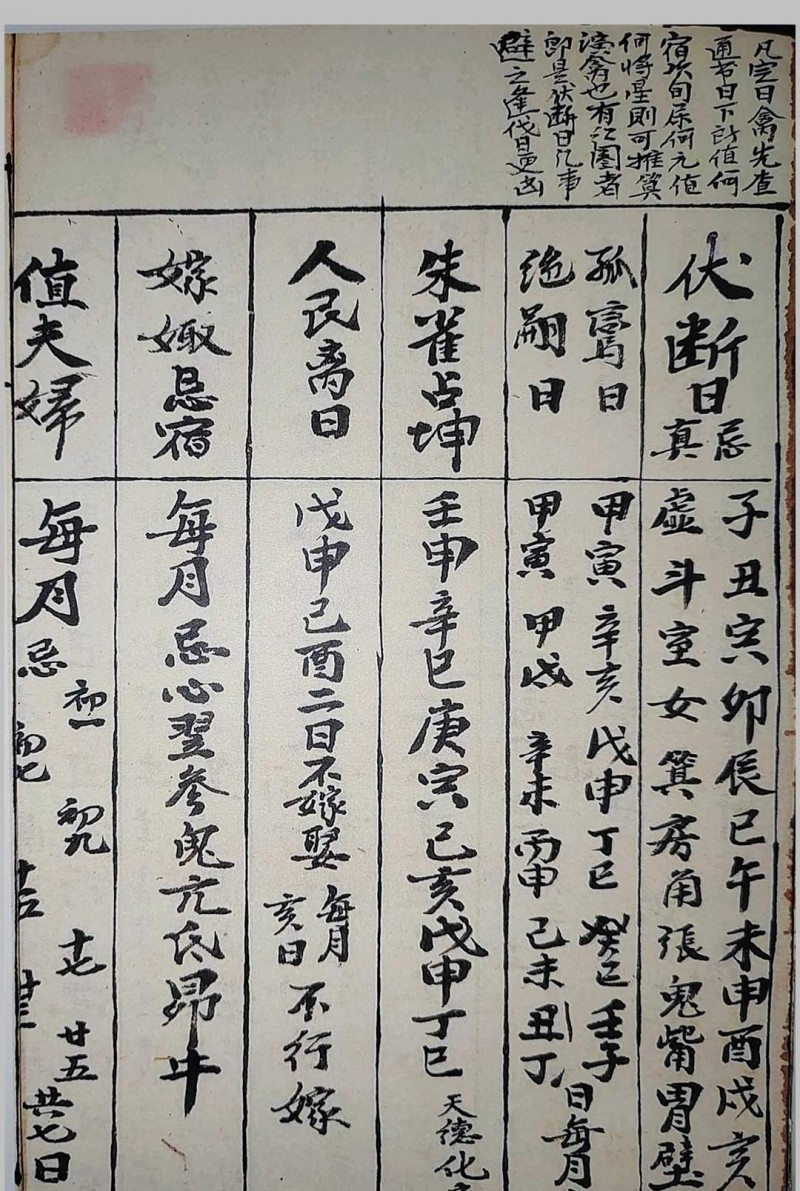 凡定日禽先查
通書日下所值何
宿次旬屬何元值
何將星則可推算
演禽也有紅圈者
即是伏斷日凡事
避之逢伐日更凶
伏斷日忌真
子丑寅卯辰巳午未申酉戌亥
虛斗室女箕房角張鬼觜胃壁
孤寡日
絕嗣日
甲寅辛亥戊申丁巳癸巳壬子
甲寅甲戌辛未丙申己未丑丁
日每月
朱雀占坤
壬申辛巳庚寅己亥戊申丁巳
天德化
人民离日
戊申己酉二日不嫁娶
每月
亥日
不行嫁
嫁娶忌宿
每月忌心翌参鬼亢氐昴牛
值夫婦
每月忌
初一
初七
初九
十七
廿五
廿七日